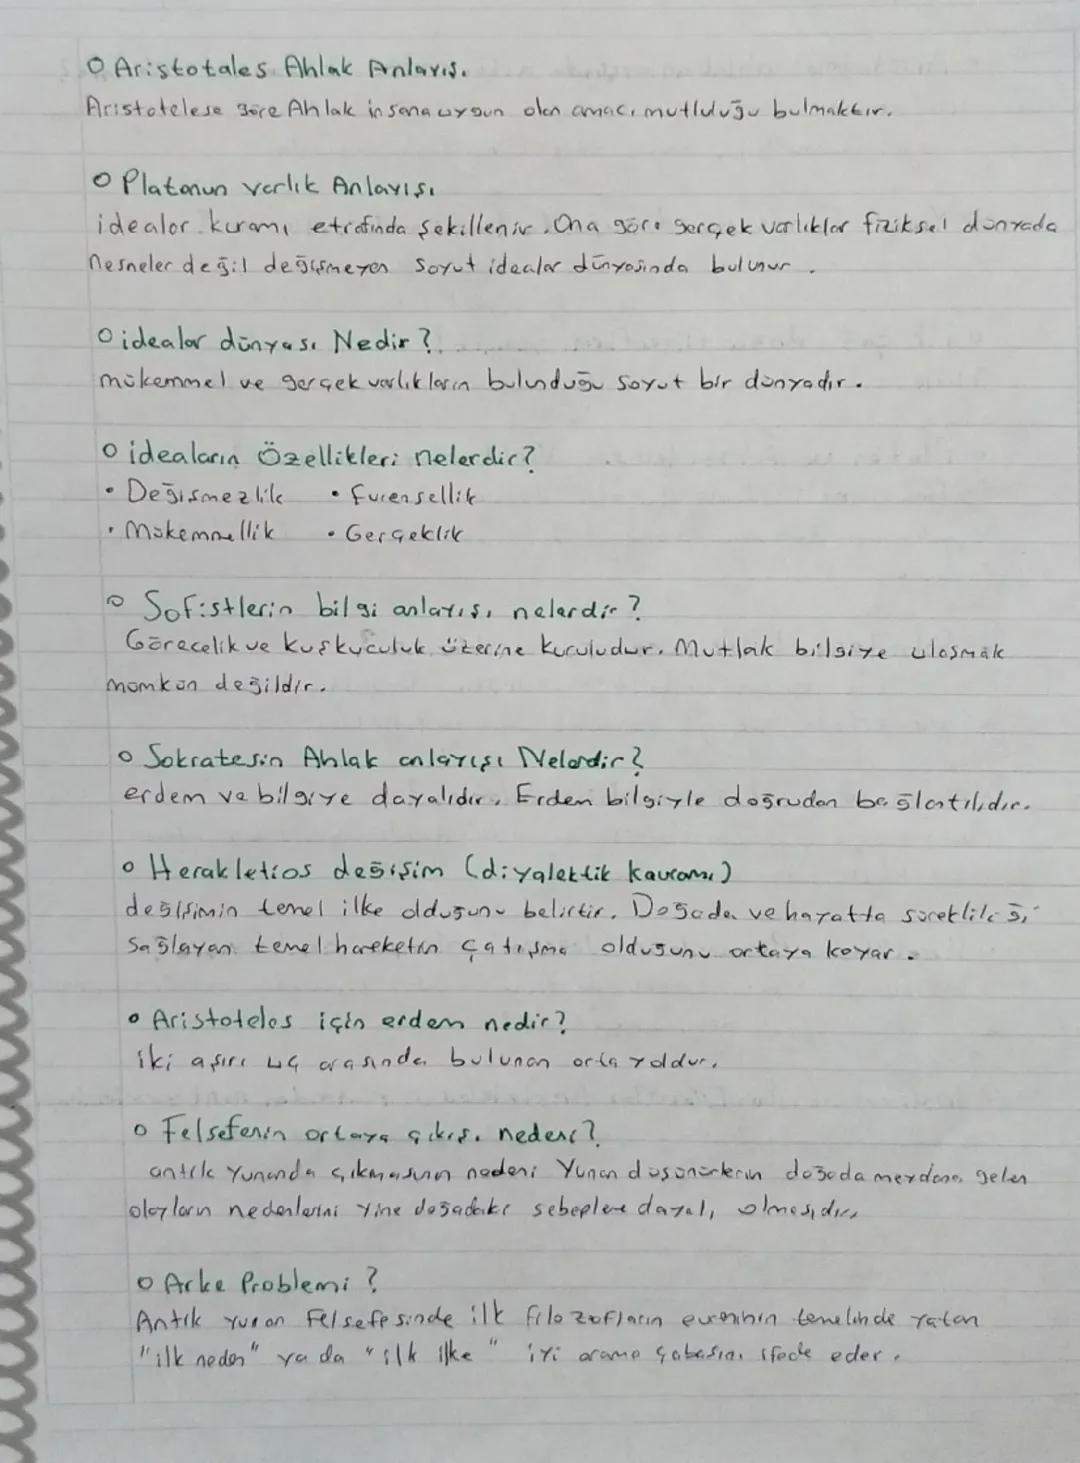 o Aristotales Ahlak Anlayış.
Aristotelese göre Ahlak insana uygun olan amacı mutluluğu bulmaktır.
o Platonun varlık Anlayışı
idealar kuramı etrafında şekillenir. Ona göre gerçek varlıklar fiziksel dünyada
Nesneler değil değişmeyen soyut idealar dünyasında bulunur.
o idealar dünyası Nedir?
mükemmel ve gerçek varlıkların bulunduğu soyut bir dünyadır.
o ideaların Özellikleri nelerdir?
• Değişmezlik • Evrensellik
• Mükemmellik • Gerçeklik
o Sofistlerin bilgi anlayışı nelerdir?
Görecelik ve kuşkuculuk üzerine kuruludur. Mutlak bilgiye ulaşmak
mümkün değildir.
o Sokratesin Ahlak anlayışı Nelerdir?
erdem ve bilgiye dayalıdır. Erdem bilgiyle doğrudan bağlantılıdır.
o Herakletios değişim (diyalektik kavramı)
değişimin temel ilke olduğunu belirtir. Doğada ve hayatta sürekliliği
Sağlayan temel hareketin çatışma olduğunu ortaya koyar.
o Aristoteles için erdem nedir?
iki aşırı uç arasında bulunan orta yoldur.
o Felsefenin ortaya çıkış nedeni?
antik Yunanda çıkmasının nedeni Yunan düşünürlerin doğada meydana gelen
olayların nedenlerini yine doğadaki sebeplere dayalı olmasıdır.
o Arke Problemi?
Antik Yunan Felsefesinde ilk filozofların evrenin temelinde yatan
"ilk neden" ya da "ilk ilke" iyi arama çabasını ifade eder.